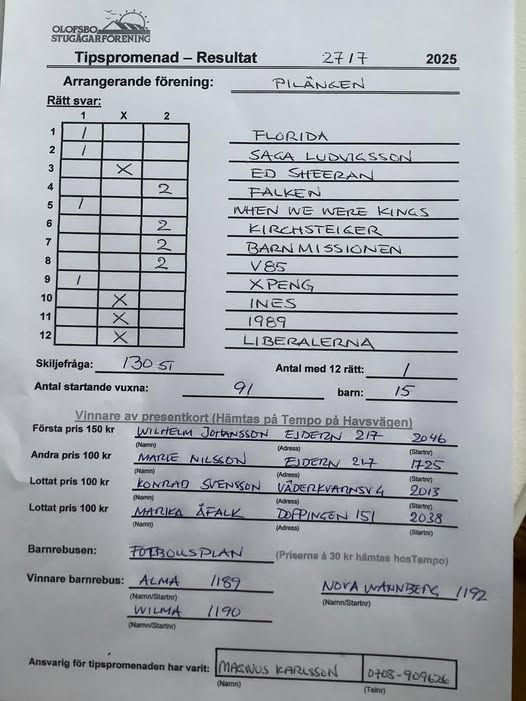 OLOFSBO
STUGÄGARFÖRENING
Tipspromenad – Resultat 27/7 2025
Arrangerande förening: PILÄNGEN
Rätt svar:
1 X 2
1 / FLORIDA
2 / SAGA LUDVIGSSON
3 X ED SHEERAN
4 2 FALKEN
5 / WHEN WE WERE KINGS
6 2 KIRCHSTEIGER
7 2 BARNMISSIONEN
8 2 V85
9 / XPENG
10 X INES
11 X 1989
12 X LIBERALERNA
Skiljefråga: 130 ST Antal med 12 rätt: 1
Antal startande vuxna: 91 barn: 15
Vinnare av presentkort (Hämtas på Tempo på Havsvägen)
Första pris 150 kr WILHELM JOHANSSON EJDERN 217 2046
(Namn) (Adress) (Startnr)
Andra pris 100 kr MARIE NILSSON EJDERN 217 1725
(Namn) (Adress) (Startnr)
Lottat pris 100 kr KONRAD SVENSSON VÄDERKVARNSV 4 2013
(Namn) (Adress) (Startnr)
Lottat pris 100 kr MARIKA ÅFALK DOPPINGEN 151 2038
(Namn) (Adress) (Startnr)
Barnrebusen: FOTBOLLSPLAN (Priserna å 30 kr hämtas hos Tempo)
Vinnare barnrebus: ALMA 1189 NOVA WANNBERG 1192
(Namn/Startnr) (Namn/Startnr)
WILMA 1190
(Namn/Startnr)
Ansvarig för tipspromenaden har varit: MAGNUS KARLSSON 0708-909626
(Namn) (Telnr)